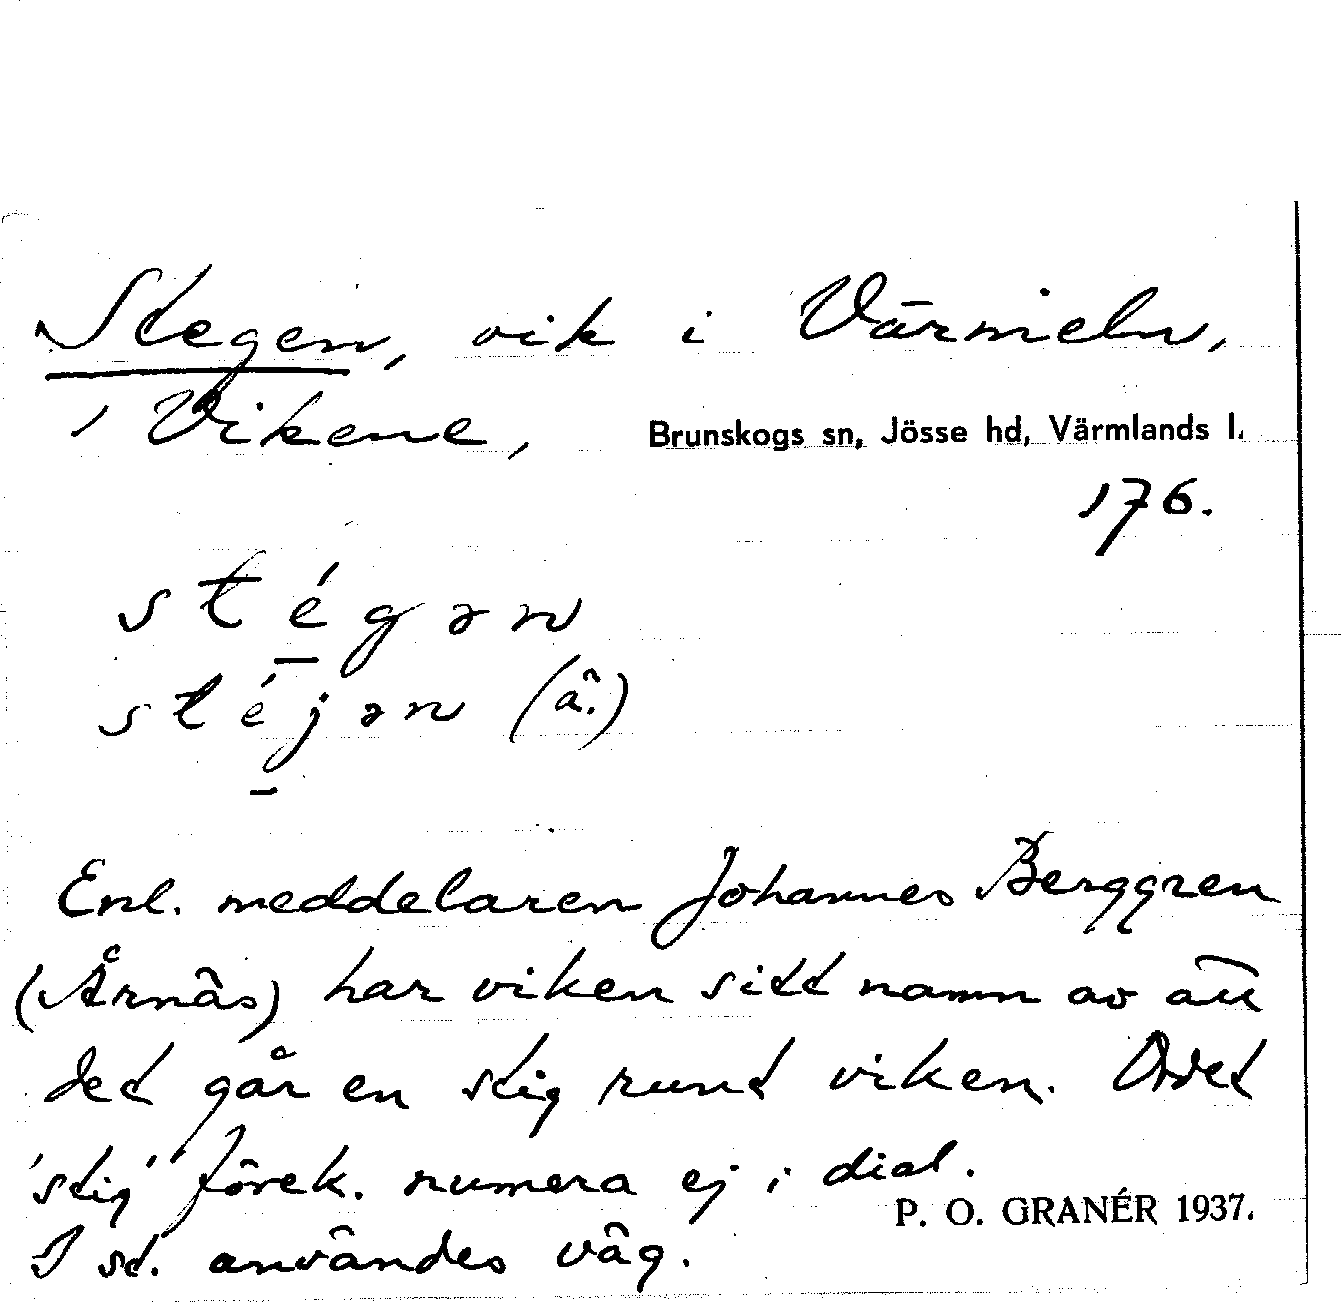 Stegen, vik i Värmeln,
i Vikene, Brunskogs sn, Jösse hd, Värmlands l.
176.
stégən
stéjən (ä.)
Enl. meddelaren Johannes Berggren
(Årnäs) har viken sitt namn av att
det går en stig runt viken. Ordet
'stig' förek. numera ej i dial.
P. O. GRANÉR 1937.
I st. användes väg.